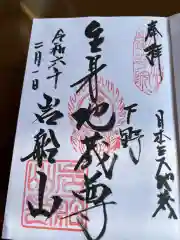 奉拝
日本三大地蔵
下野
生身地蔵尊
岩船山
令和六年
二月一日